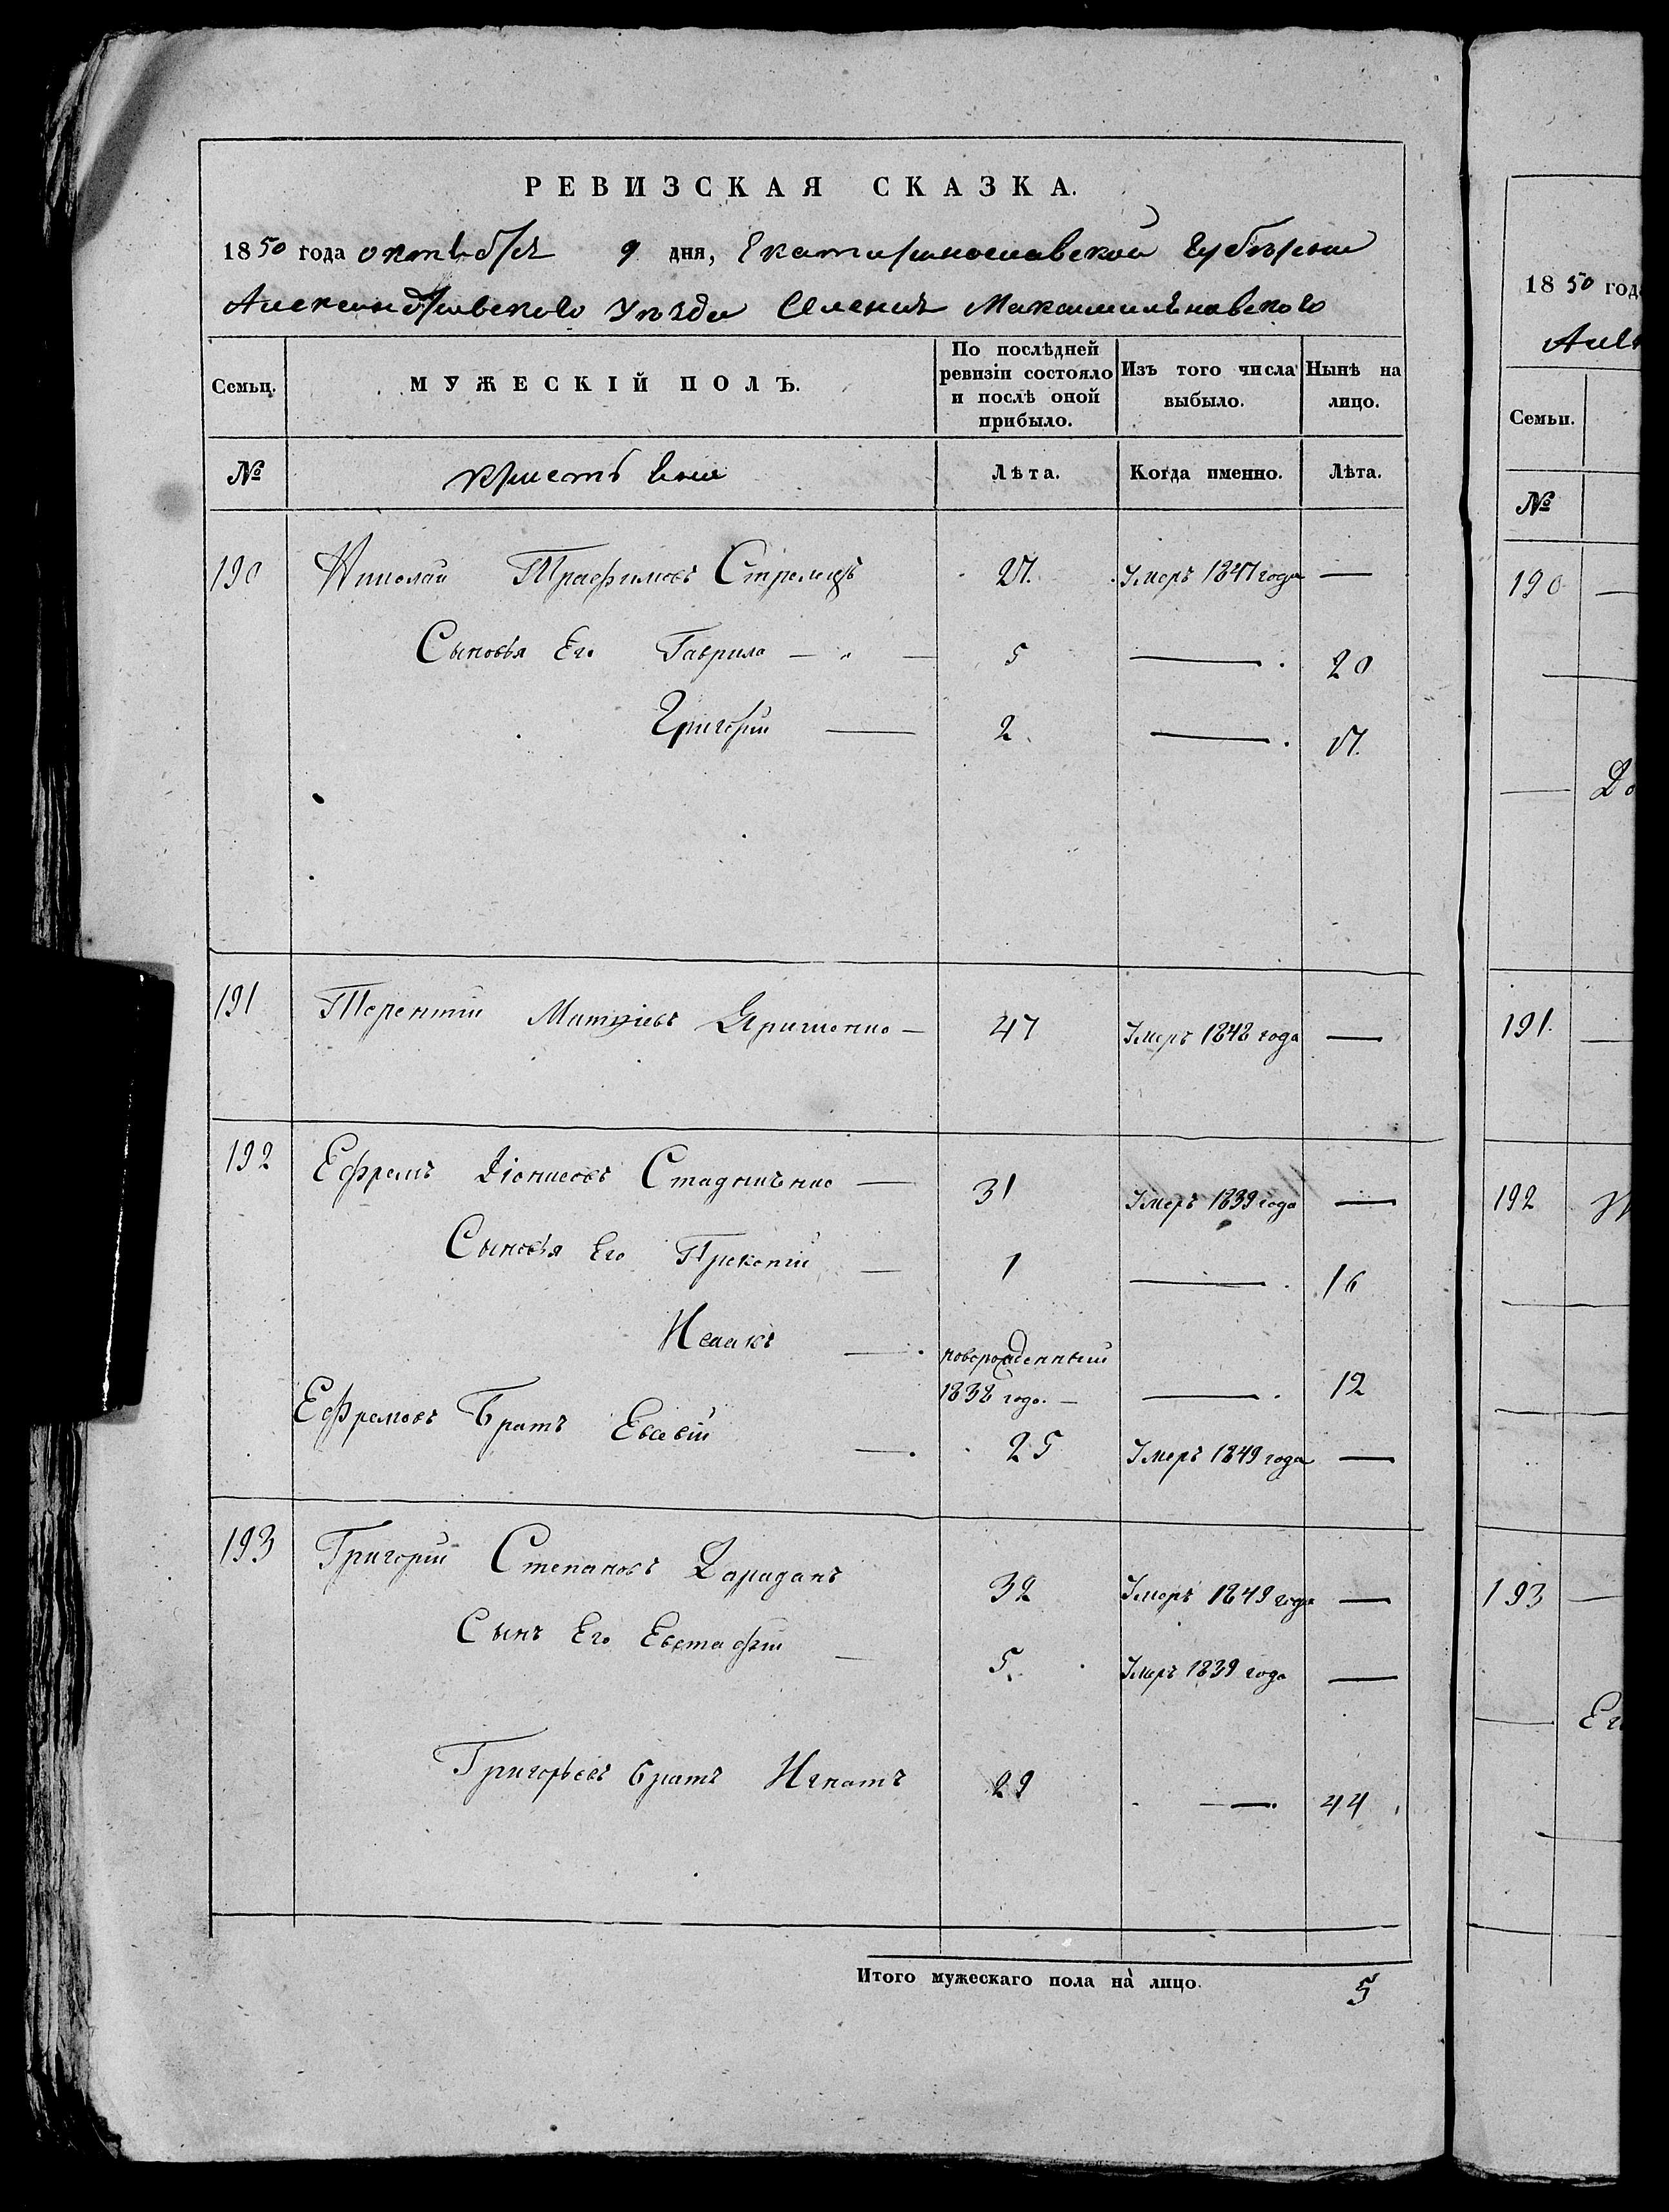 РЕВИЗСКАЯ СКАЗКА.
1850 года октября 9 дня, Екатеринославской Губернии
Александровского Уезда Селения Максимильяновского
Семьи.
МУЖЕСКІЙ ПОЛЪ.
По послѣдней ревизіи состояло и послѣ оной прибыло.
Изъ того числа выбыло.
Нынѣ на лицо.
№
Лѣта.
Когда именно.
Лѣта.
190 Николай Трафимовъ Стрелецъ 27. Умеръ 1847 года —
Сыновья Его Гаврило — „ — 5 — 20
Григорий — 2. — 17.
191 Терентий — 47 Умеръ 1848 года —
192 Ефремъ Діонисовъ — 31 Умеръ 1839 года —
Сыновья Его Прокопій — 1 — 16
Исаакъ — новорожденный
1838 года. — — 12
Ефремовъ Братъ Евсевій — 25 Умеръ 1849 года —
193 Григорий Степановъ 32 Умеръ 1849 года —
Сынъ Его Евстафий — 5. Умеръ 1839 года —
Григорьевъ братъ Игнатъ 29 — 44
Итого мужескаго пола на лицо. 5
1850 год
Семьи.
№
190
191.
192
193